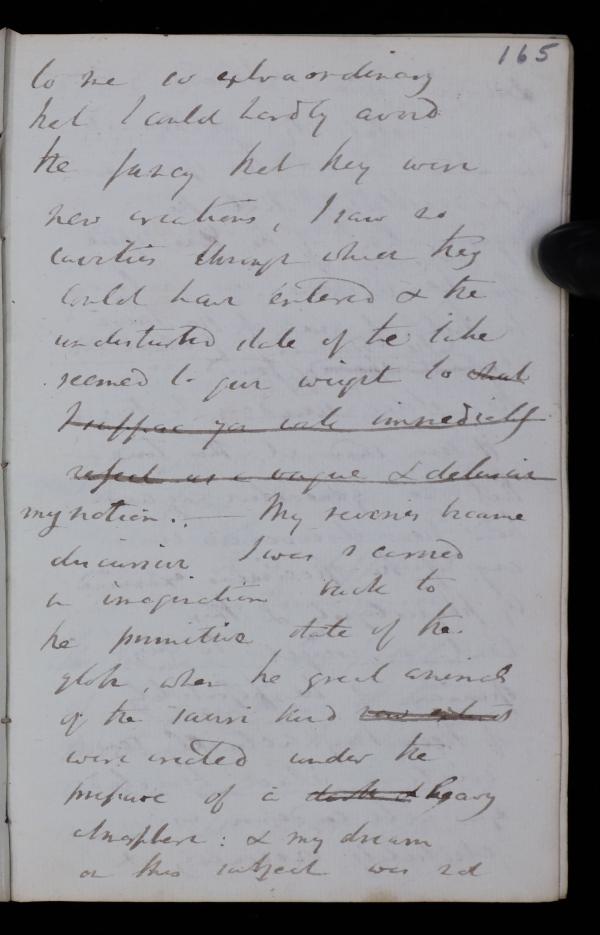 165
to me so extraordinary
that I could hardly avoid
the fancy that they were
new creations, I saw no
cavities through which they
could have entered & the
undisturbed state of the lake
seemed to give weight to that
I suppose you will immediately
reject as a vague & delusive
my notion. — My reveries became
discursive I was carried
in imagination back to
the primitive state of the
globe, when the great animals
of the sauri kind
were created under the
pressure of a heavy
atmosphere: & my dream
on this subject was not